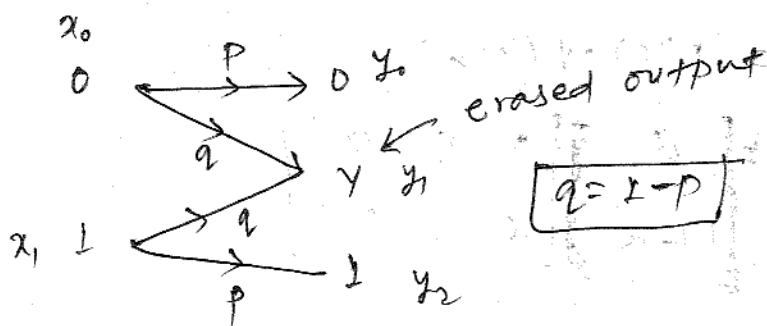 x₀
0 P 0 y₀
erased output
q
Y y₁
q = 1-P
q
x₁ 1
1 y₂
P